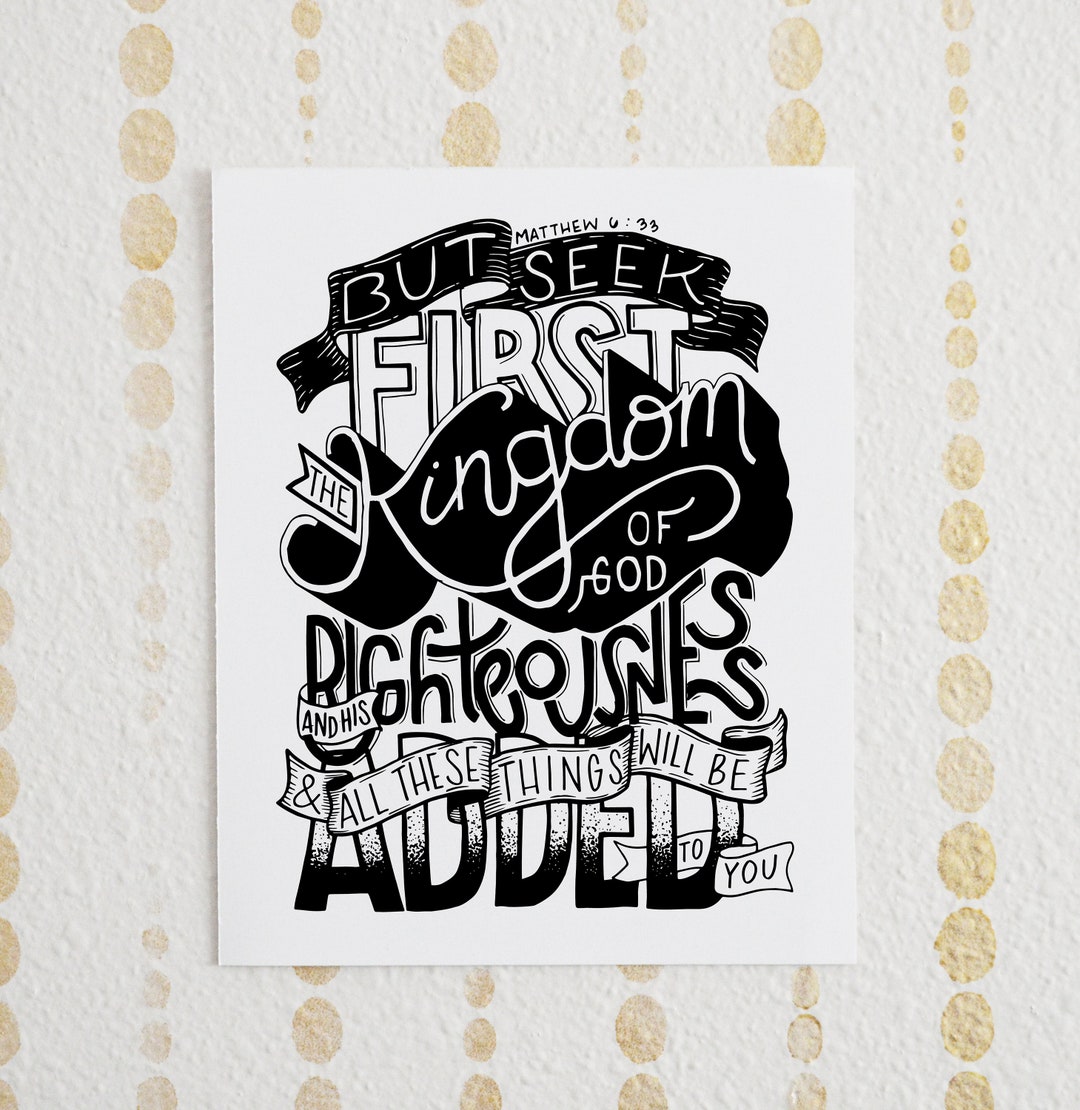 MATTHEW 6:33
BUT SEEK
FIRST
THE Kingdom
OF
GOD
AND HIS RIGhteousNESS
& ALL THESE THINGS WILL BE
ADDED
TO YOU